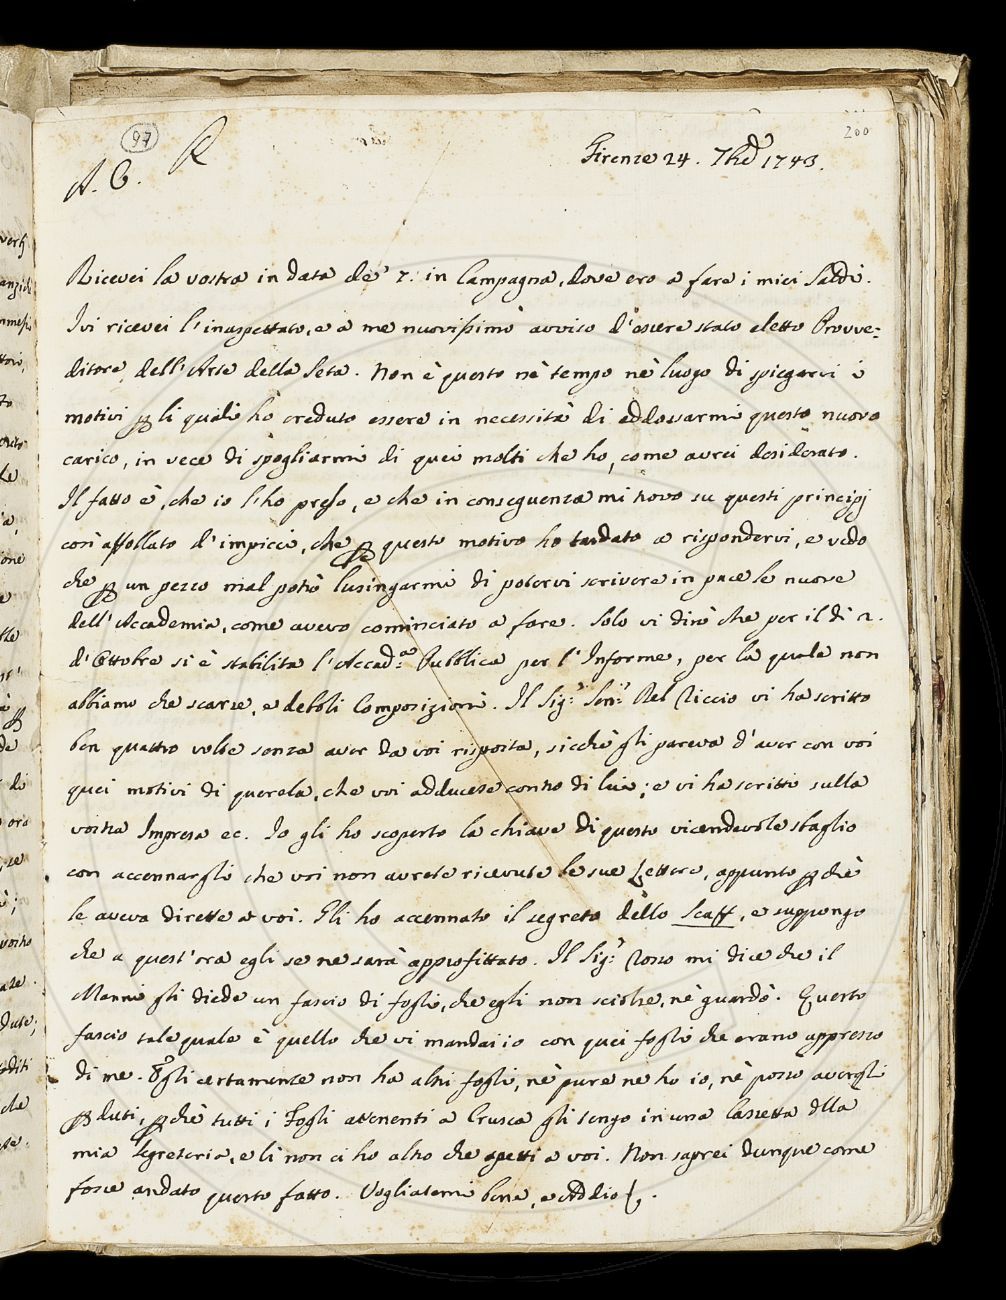 97
200
A. C. R
Firenze 24. 7bre 1743.
Ricevei la vostra in data de' 7. in Campagna, dove ero a fare i miei Saldi.
Ivi ricevei l'inaspettato, e a me nuovissimo avviso d'essere stato eletto Provve-
ditore dell'Arte della Seta. Non è questo nè tempo nè luogo di spiegarvi i
motivi p li quali hò creduto essere in necessità di addossarmi questo nuovo
carico, in vece di spogliarmi di quei molti che ho, come avrei desiderato.
Il fatto è, che io l'ho preso, e che in conseguenza mi trovo su questi principj
così affollato d'impicci, che p questo motivo ho tardato a rispondervi, e vedo
che p un pezzo mal potrò lusingarmi di potervi scrivere in pace le nuove
dell'Accademia, come avevo cominciato a fare. Solo vi dirò che per il dì 2.
d'Ottobre si è stabilita l'Accad.a Pubblica per l'Informe, per la quale non
abbiamo che scarse, e deboli Composizioni. Il Sig.r Sen.r Del Riccio vi ha scritto
ben quattro volte senza aver da voi risposta, sicchè gli pareva d'aver con voi
quei motivi di querela, che voi adducete contro di lui; e vi ha scritto sulla
vostra Impresa ec. Io gli ho scoperto la chiave di questo vicendevole sbaglio
con accennargli che voi non avrete ricevute le sue Lettere, appunto pchè
le aveva dirette a voi. Gli ho accennato il segreto dello Scaff, e suppongo
che a quest'ora egli se ne sarà approfittato. Il Sig.r Rosso mi dice che il
Manni gli diede un fascio di fogli, che egli non sciolse, nè guardò. Questo
fascio tale quale è quello che vi mandai io con quei fogli che erano appresso
di me. Egli certamente non ha altri fogli, nè pure ne ho io, nè posso avergli
pduti, pchè tutti i Fogli attenenti a Crusca gli tengo in una Cassetta dlla
mia Segreteria, e lì non ci ho altro che spetti a voi. Non saprei dunque come
fosse andato questo fatto. Vogliatemi bene, e Addio.